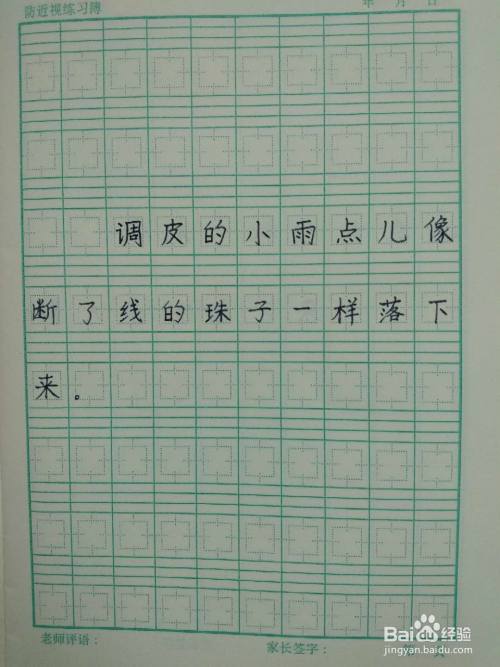 防近视练习簿 年 月 日
调皮的小雨点儿像
断了线的珠子一样落下
来。
老师评语： 家长签字： 页
Baidu经验
jingyan.baidu.com